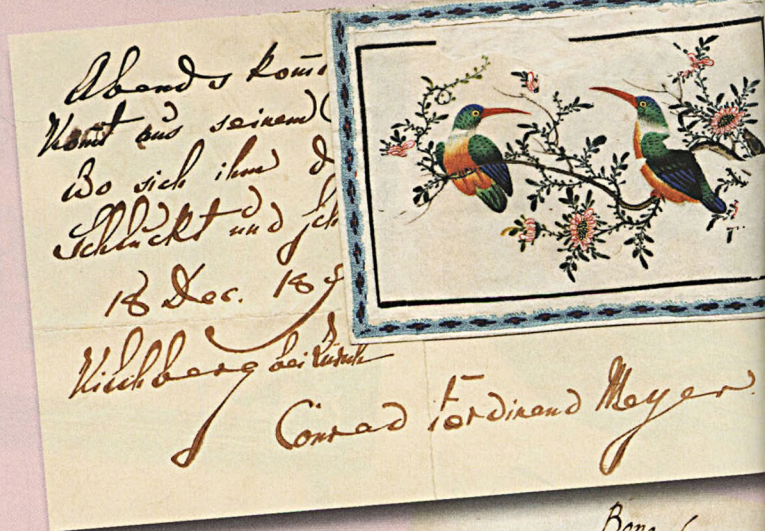 Abends kom̄t
Kom̄t aus seinem
Wo sich ihm d
Schluckt und sch
18 Dec. 189
Kilchberg bei Zürich
Conrad Ferdinand Meyer.